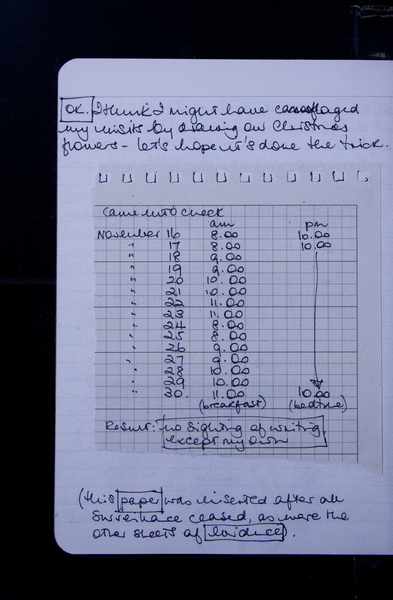 OK. I think I might have camoflaged
my visits by drawing on Christmas
flowers - let's hope it's done the trick.
Came into check
am pm
November 16 8.00 10.00
" 17 8.00 10.00
" 18 9.00
" 19 9.00
" 20 10.00
" 21 10.00
" 22 11.00
" 23 11.00
" 24 8.00
" 25 8.00
" 26 9.00
" 27 9.00
" 28 10.00
" 29 10.00
" 30. 11.00 10.00
(breakfast) (bedtime)
Result: no sighting of writing
except my own
(this paper was inserted after all
surveillance ceased, as were the
other sheets of evidence).